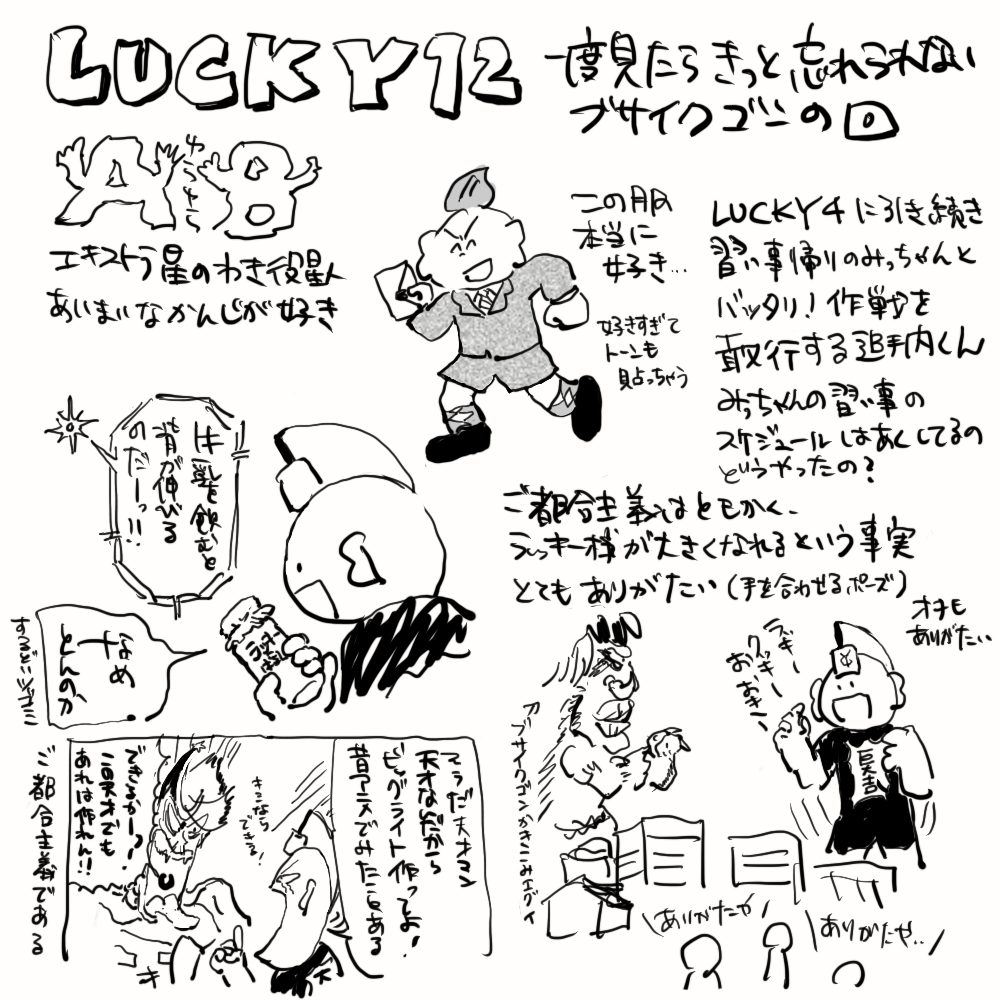 LUCKY12
一度見たらきっと忘れられない
ブサイクゴンの回
AゆうとこB
エキストラ星のわき役星人
あいまいなかんじが好き
この服
本当に
好き…
好きすぎて
トーンも
貼っちゃう
LUCKY4に引き続き
習い事帰りのみっちゃんと
バッタリ!作戦を
敢行する追手内くん
みっちゃんの習い事の
スケジュールはあくしてるの
どうやったの?
牛乳を飲むと
背が伸びる
のだーっ!!
なめ
とんのか
するどいツッコミ
ご都合主義はともかく、
ラッキー様が大きくなれるという事実
とてもありがたい(手を合わせるポーズ)
オチも
ありがたい
ラッキー
クッキー
おきー
巨大吉
ブサイクゴンかきこみエグイ
ありがたや
ありがたや..
てゆうだ夫オマエ
天才なんだから
ビッグライト作ってよ!
昔アニメでみたことある
きみなら
できる!
できるかーっ!
この天才でも
あれは作れん!!
ご都合主義である